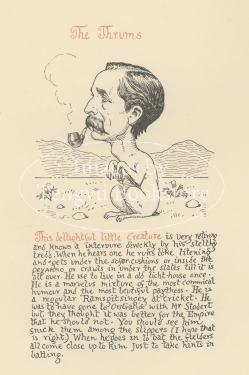 The Thrums
This dellightful little Creature is very retiring
and knows a intervuwe direckly by his stelthy
tred. When he hears one he
and gets under the cushions or inside the
peyarno, or crawls in under the stalls till it is
all over. He use to live in a old light-house once.
He is a marvelus mixture, of the most commical
humour and the most beutiful paythoss. He is
a reggular Ramspitsingey at cricket. He
was to have gone to with Mr Stodert
but they thought it was better for the Empire
that he should not. You should see him
snick them among the slippers (I hope that
is right.) When he goes in to bat the fielders
all come close up to him just to take hints in
batting.